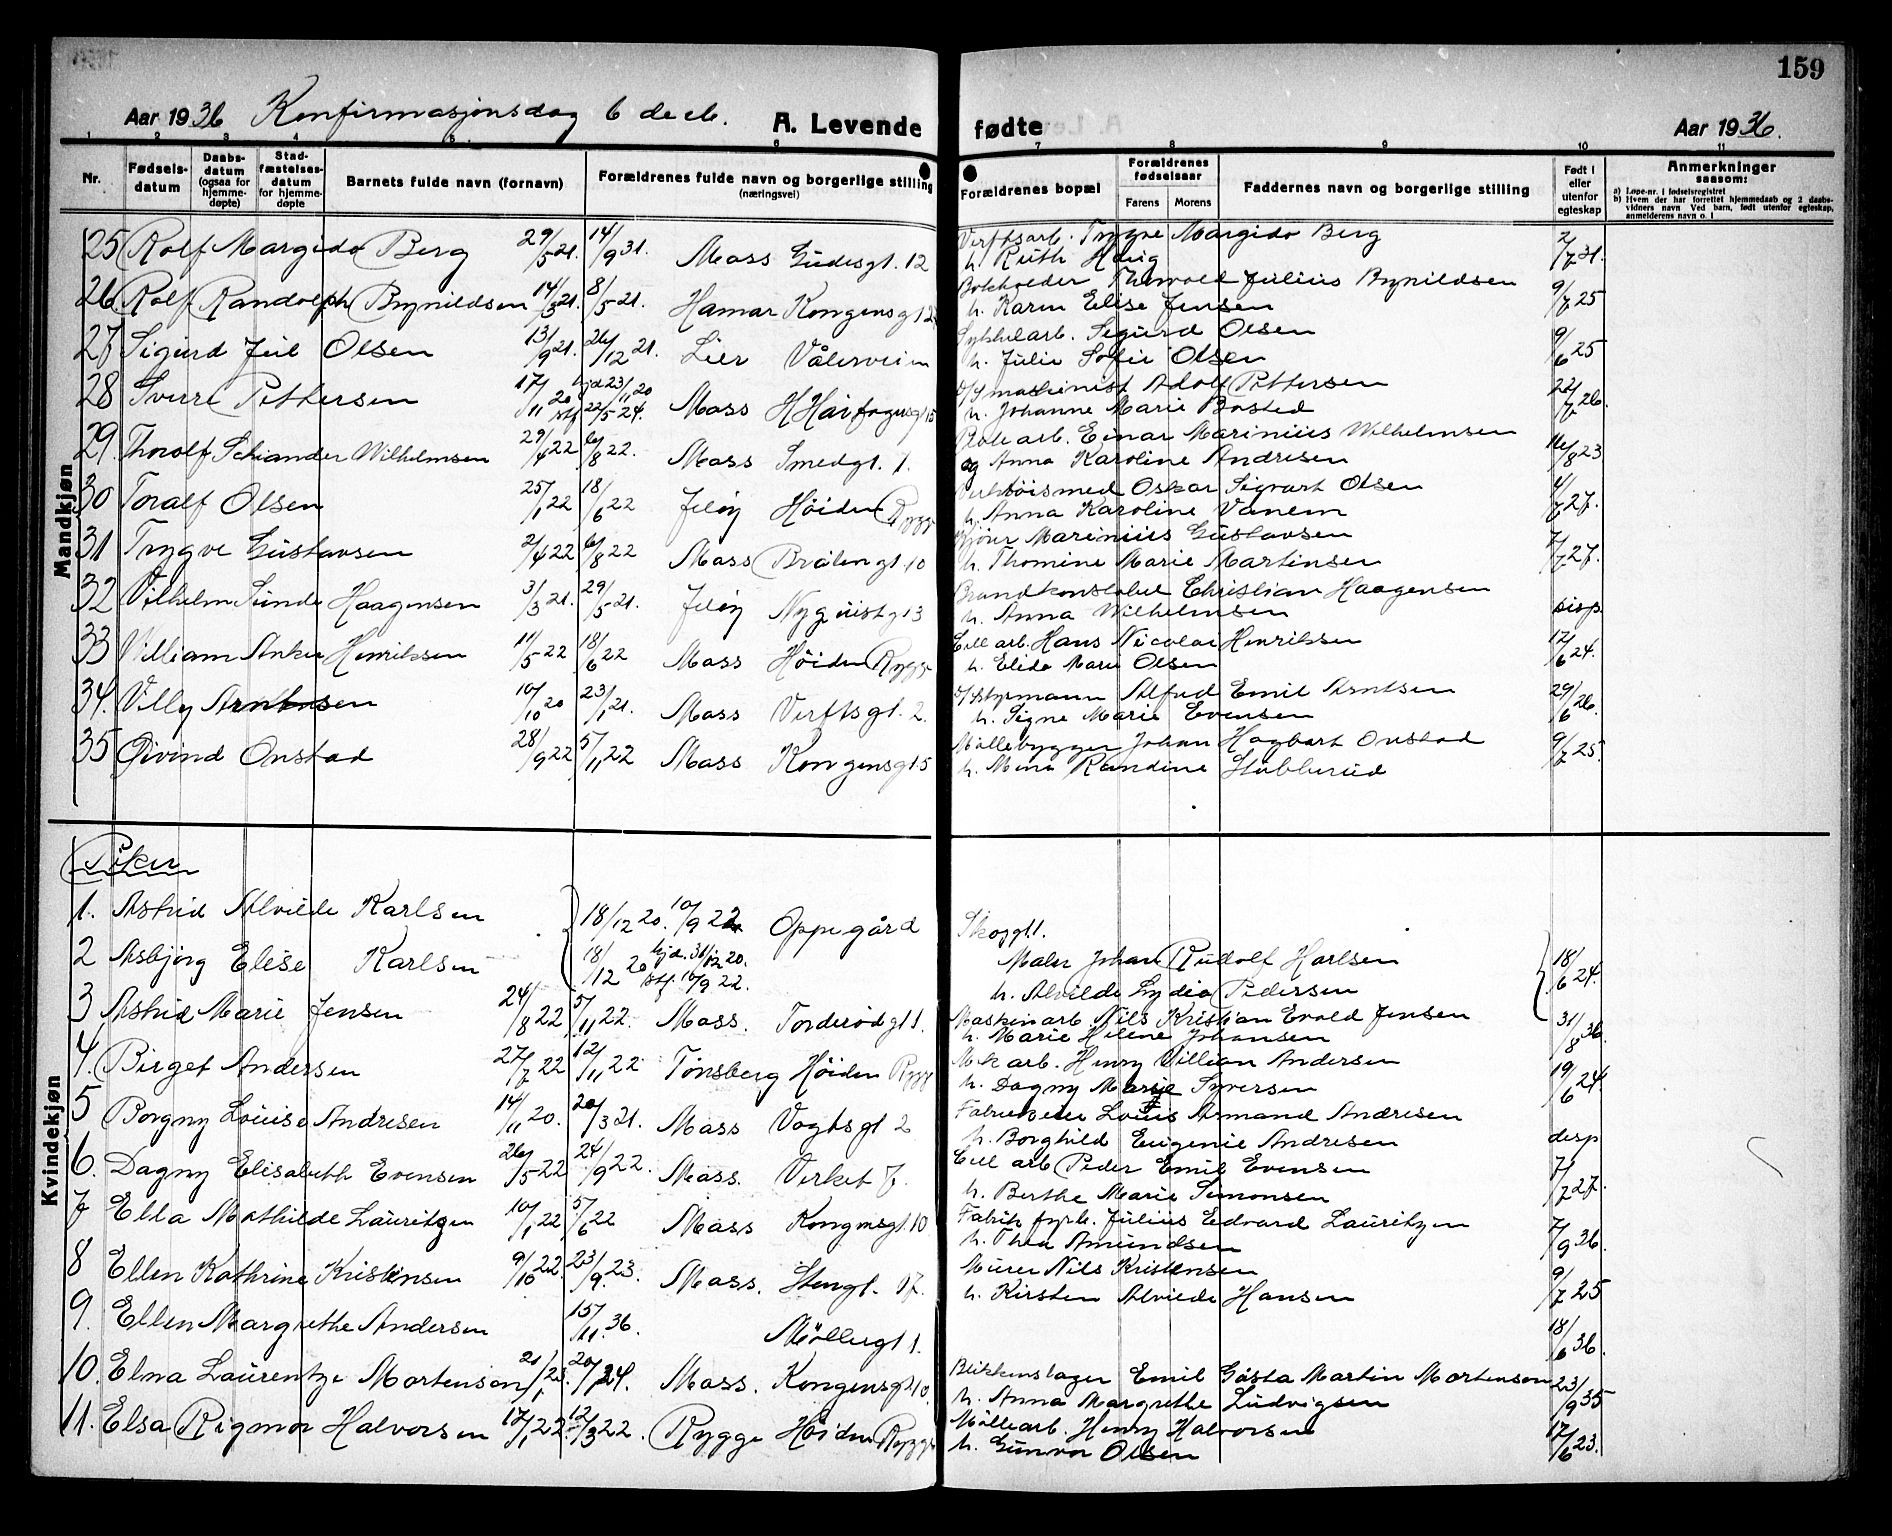 159
Aar 1936 Konfirmasjonsdag 6 decb. A. Levende fødte Aar 1936.
1 2 3 4 5 6 7 8 9 10 11
Nr.
Fødsels-datum
Daabs-datum (ogsaa for hjemme-døpte)
Stad-fæstelses-datum for hjemme-døpte
Barnets fulde navn (fornavn)
Forældrenes fulde navn og borgerlige stilling (næringsvei)
Forældrenes bopæl
Forældrenes fødselsaar
Farens Morens
Faddernes navn og borgerlige stilling
Født i eller utenfor egteskap
Anmerkninger saasom:
a) Løpe-nr. i fødselsregistret
b) Hvem der har forrettet hjemmedaab og 2 daabsvidners navn Ved barn, født utenfor egteskap, anmelderens navn o. l
Mandkjøn
25 Rolf Margido Berg 29/5 21. 14/9 31. Moss Gudesgt. 12 Verftsarb. Trygve Margido Berg 2/7 31.
h. Ruth Haug
26 Rolf Randolph Brynildsen 14/3 21. 8/5 21. Hamar Kongensgt 12 Bokholder Thorvald Julius Brynildsen 9/7 25
h. Karen Elise Jensen
27 Sigurd Juel Olsen 13/9 21. 26/12 21. Lier Vålerveien Sykkelarb. Sigurd Olsen 9/6 25
h. Julie Sofie Olsen
28 Sverre Pettersen 17/11 20 hjd 23/11 20 stf 22/5 24. Moss H Hårfagersgt 15 D/S maskinist Adolf Pettersen 22/7 26.
h. Johanne Marie Bosted
29. Thorolf Schander Wilhelmsen 29/4 22 6/8 22. Moss Smedgt. 1. Einar Marinius Wilhelmsen 16/8 23
og Anna Karoline Andresen
30 Toralf Olsen 25/1 22 18/6 22 Jeløy Höiden Rygge Verktöismed Oskar Sigvart Olsen 4/7 27.
h. Anna Karoline Vanem
31 Trygve Gustavsen 2/4 22 6/8 22 Moss Bråtengt. 10 Kjörer Marinius Gustavsen 7/7 27.
h. Thomine Marie Martinsen
32 Vilhelm Sunde Haagensen 3/3 21. 29/5 21. Jeløy Nyquistgt 3 Brandkonstabel Christian Haagensen disp.
h. Anna Wilhelmsen
33 William Anker Henriksen 11/5 22 18/6 22 Moss Höiden Rygge Cell arb. Hans Nicolai Henriksen 12/6 24.
h. Elida Marie Olsen
34. Villy Arntsen 10/10 20 23/1 21. Moss Verftsgt. 2. D/S styrmann Alfred Emil Arntsen 29/6 26.
h. Signe Marie Evensen
35 Øivind Onstad 28/9 22 5/11 22 Moss Kongensgt 5 Möllebygger Johan Hagbart Onstad 9/7 25.
h. Mina Randine Stubberud
Piker
Kvindekjøn
1. Astrid Alvilde Karlsen 18/12 20. 10/9 22 Oppegård Skoggt 1.
2 Asbjørg Elise Karlsen 18/12 20 hjd. 31/12 20. stf. 10/9 22. Maler Johan Rudolf Karlsen 18/6 24.
h. Alvilde Lydia Pedersen
3 Astrid Marie Jensen 24/8 22 5/11 22. Moss. Torderödgt 1. Maskinarb. Nils Kristian Evald Jensen 31/8 36.
h. Marie Helene Johansen
4. Birget Andersen 27/7 22 12/11 22 Tönsberg Höiden Rygge Mek arb. Henry Villian Andersen 19/6 24.
h. Dagny Marie Syversen
5 Borgny Louise Andresen 14/11 20. 20/3 21. Moss Vogtsgt 2 Louis Armand Andresen desp
h. Borghild Eugenie Andresen
6. Dagny Elisabeth Evensen 26/5 22 24/9 22. Moss. Verket 7. Cell arb Peder Emil Evensen 7/7 27.
h. Berthe Marie Simonsen
7 Ella Mathilde Lauritzen 10/1 22 5/6 22 Moss Kongensgt. 10 Fabrik fyrb. Julius Edvard Lauritzen 7/9 36.
h. Thea Amundsen
8 Ellen Kathrine Kristensen 9/10 22. 23/9 23. Moss. Stengt. 17. Murer Nils Kristensen 9/7 25
h. Kirsten Alvilde Hansen
9. Ellen Margrethe Andersen 15/11. 36. Möllergt 1. 18/6 36.
10. Elna Laurentze Mortenson Moss. Kongensgt 10. Blikkenslager Emil Gösta Martin Mortenson 23/9 35
h. Anna Margrethe Ludvigsen
11. Elsa Rigmor Halvorsen 17/1 22. 12/3 22. Rygge Höiden Rygge Möllearb. Henry Halvorsen 17/6 23.
h. Gunvor Olsen